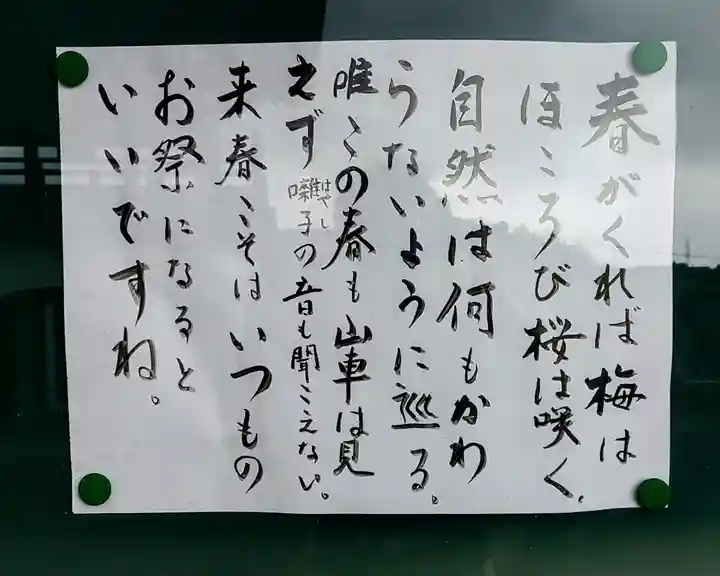 春がくれば梅は
ほころび桜は咲く、
自然は何もかわ
らないように巡る。
唯この春も山車は見
えず囃子の音も聞こえない。
はやし
来春こそはいつもの
お祭になると
いいですね。